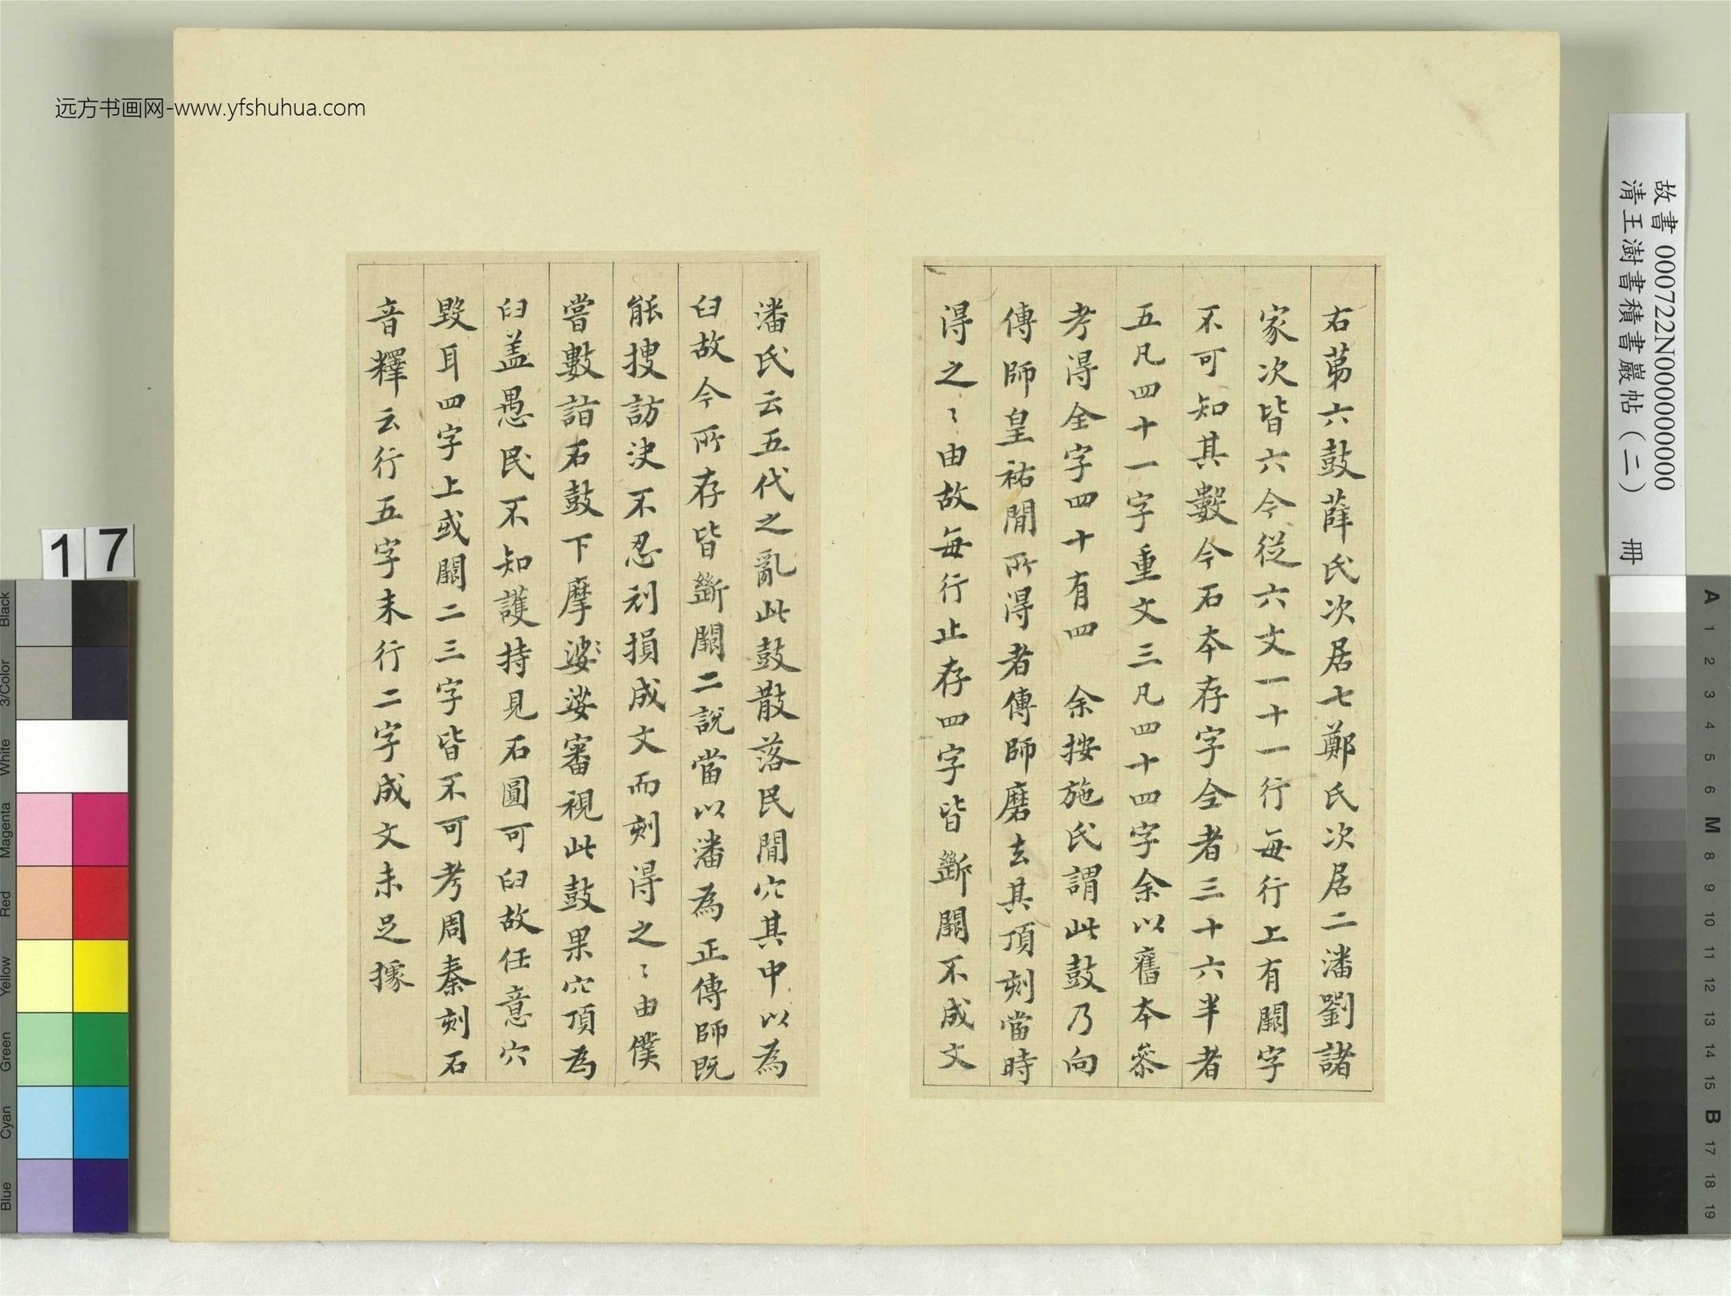 远方书画网-www.yfshuhua.com
故書 000722N000000000
清王澍書積書巖帖(二) 冊
右苐六鼓薛氏次居七鄭氏次居二潘劉諸
家次皆六今從六文一十一行每行上有闕字
不可知其數今石本存字全者三十六半者
五凡四十一字重文三凡四十四字余以舊本叅
考得全字四十有四 余按施氏謂此鼓乃向
傳師皇祐間所得者傳師磨去其頂刻當時
得之〻由故每行止存四字皆斷闕不成文
潘氏云五代之亂此鼓散落民間穴其中以為
臼故今所存皆斷闕二說當以潘為正傳師既
能搜訪決不忍刓損成文而刻得之〻由僕
嘗數詣石鼓下摩娑〻審視此鼓果穴頂為
臼盖愚民不知護持見石圓可臼故任意穴
毀耳四字上或闕二三字皆不可考周秦刻石
音釋云行五字末行二字成文未足據
17
Black
3/Color
White
Magenta
Red
Yellow
Green
Cyan
Blue
A 1 2 3 4 5 6 M 8 9 10 11 12 13 14 15 B 17 18 19